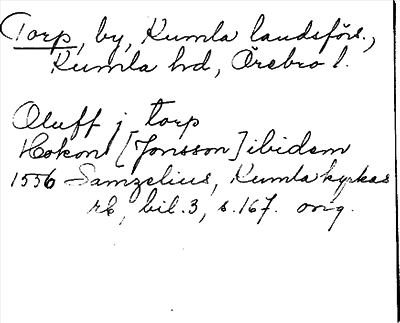 Torp, by, Kumla landsförs.,
Kumla hd, Örebro l.
Oluff j torp
Hokon [Jonsson] ibidem
1556 Samzelius, Kumla kyrkas
rk, bil. 3, s. 167. orig.